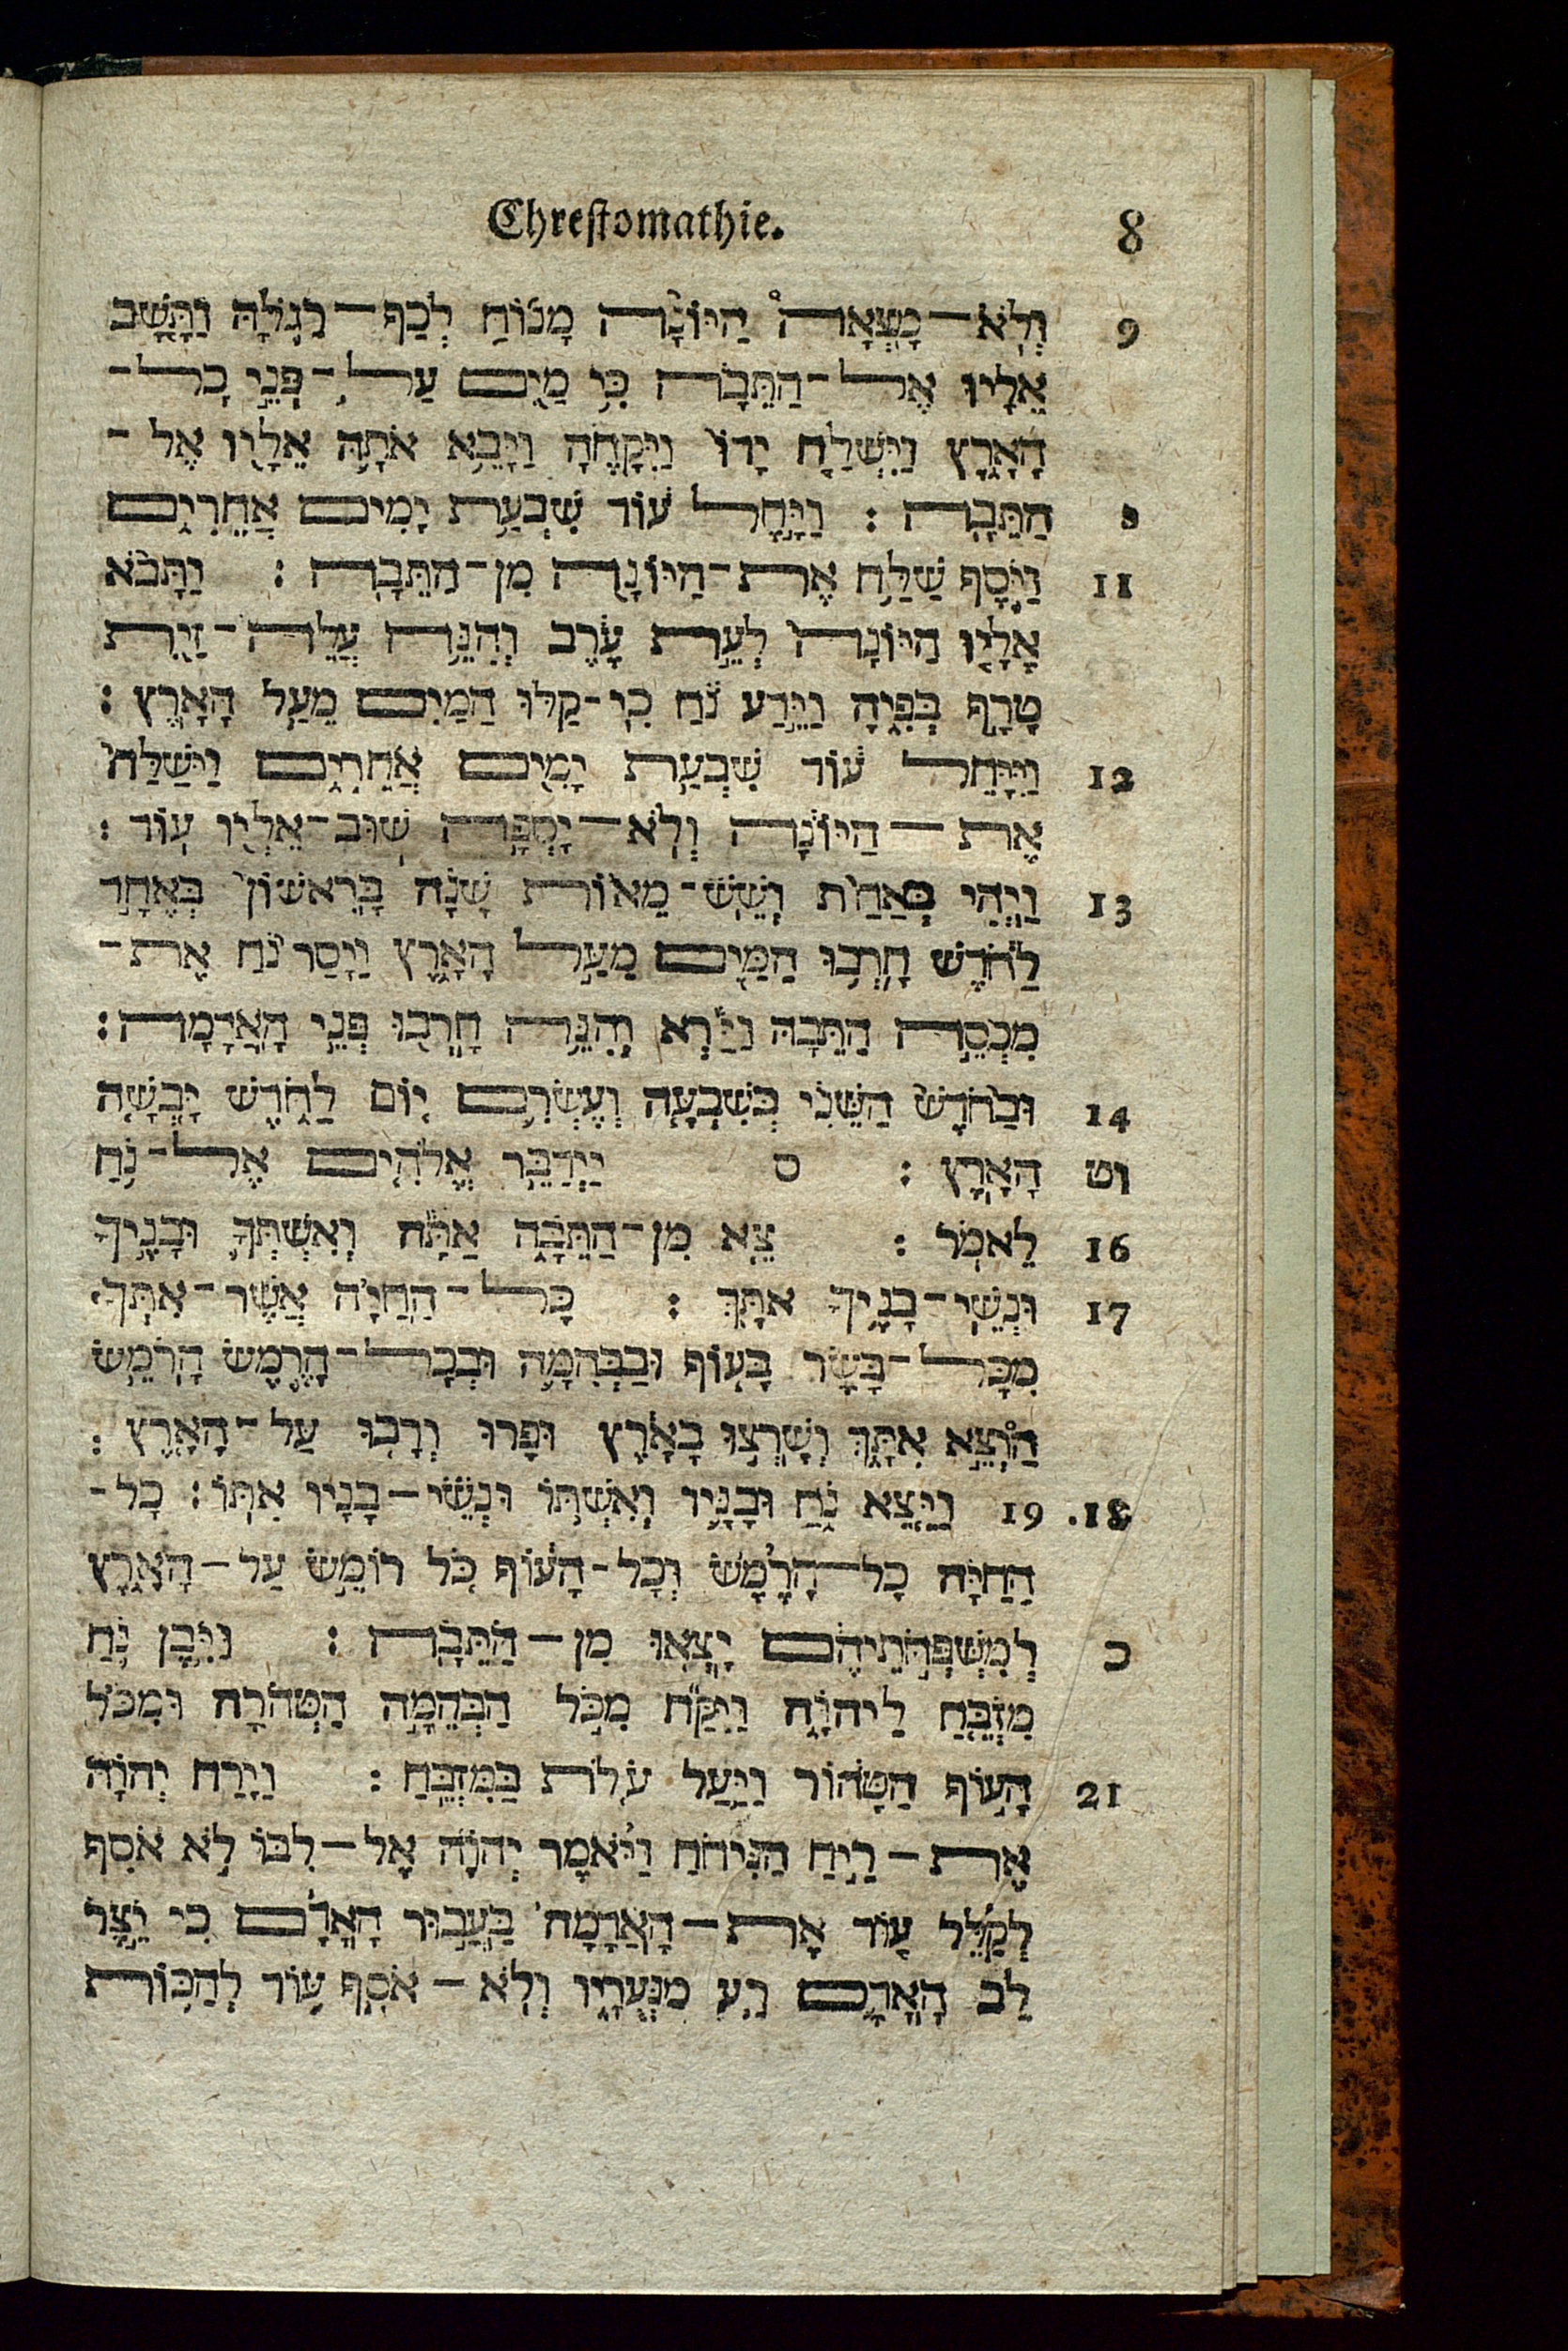 Chrestomathie. 8
9 וְלֹא־מָצְאָה הַיּוֹנָה מָנוֹחַ לְכַף־רַגְלָהּ וַתָּשָׁב
אֵלָיו אֶל־הַתֵּבָה כִּי מַיִם עַל־פְּנֵי כָל־
הָאָרֶץ וַיִּשְׁלַח יָדוֹ וַיִּקָּחֶהָ וַיָּבֵא אֹתָהּ אֵלָיו אֶל־
הַתֵּבָה׃ וַיָּחֶל עוֹד שִׁבְעַת יָמִים אֲחֵרִים
11 וַיֹּסֶף שַׁלַּח אֶת־הַיּוֹנָה מִן־הַתֵּבָה׃ וַתָּבֹא
אֵלָיו הַיּוֹנָה לְעֵת עֶרֶב וְהִנֵּה עֲלֵה־זַיִת
טָרָף בְּפִיהָ וַיֵּדַע נֹחַ כִּי־קַלּוּ הַמַּיִם מֵעַל הָאָרֶץ׃
12 וַיִּיָּחֶל עוֹד שִׁבְעַת יָמִים אֲחֵרִים וַיְשַׁלַּח
אֶת־הַיּוֹנָה וְלֹא־יָסְפָה שׁוּב־אֵלָיו עוֹד׃
13 וַיְהִי בְּאַחַת וְשֵׁשׁ־מֵאוֹת שָׁנָה בָּרִאשׁוֹן בְּאֶחָד
לַחֹדֶשׁ חָרְבוּ הַמַּיִם מֵעַל הָאָרֶץ וַיָּסַר נֹחַ אֶת־
מִכְסֵה הַתֵּבָה וַיַּרְא וְהִנֵּה חָרְבוּ פְּנֵי הָאֲדָמָה׃
14 וּבַחֹדֶשׁ הַשֵּׁנִי בְּשִׁבְעָה וְעֶשְׂרִים יוֹם לַחֹדֶשׁ יָבְשָׁה
וט הָאָרֶץ׃ ס וַיְדַבֵּר אֱלֹהִים אֶל־נֹחַ
16 לֵאמֹר׃ צֵא מִן־הַתֵּבָה אַתָּה וְאִשְׁתְּךָ וּבָנֶיךָ
17 וּנְשֵׁי־בָנֶיךָ אִתָּךְ׃ כָּל־הַחַיָּה אֲשֶׁר־אִתְּךָ
מִכָּל־בָּשָׂר בָּעוֹף וּבַבְּהֵמָה וּבְכָל־הָרֶמֶשׂ הָרֹמֵשׂ
הוֹצֵא אִתָּךְ וְשָׁרְצוּ בָאָרֶץ וּפָרוּ וְרָבוּ עַל־הָאָרֶץ׃
18. 19 וַיֵּצֵא נֹחַ וּבָנָיו וְאִשְׁתּוֹ וּנְשֵׁי־בָנָיו אִתּוֹ׃ כָּל־
הַחַיָּה כָּל־הָרֶמֶשׂ וְכָל־הָעוֹף כֹּל רוֹמֵשׂ עַל־הָאָרֶץ
כ לְמִשְׁפְּחֹתֵיהֶם יָצְאוּ מִן־הַתֵּבָה׃ וַיִּבֶן נֹחַ
מִזְבֵּחַ לַיהוָֹה וַיִּקַּח מִכֹּל הַבְּהֵמָה הַטְּהֹרָה וּמִכֹּל
21 הָעוֹף הַטָּהוֹר וַיַּעַל עֹלֹת בַּמִּזְבֵּחַ׃ וַיָּרַח יְהוָֹה
אֶת־רֵיחַ הַנִּיחֹחַ וַיֹּאמֶר יְהוָֹה אֶל־לִבּוֹ לֹא אֹסִף
לְקַלֵּל עוֹד אֶת־הָאֲדָמָה בַּעֲבוּר הָאָדָם כִּי יֵצֶר
לֵב הָאָדָם רַע מִנְּעֻרָיו וְלֹא־אֹסִף עוֹד לְהַכּוֹת